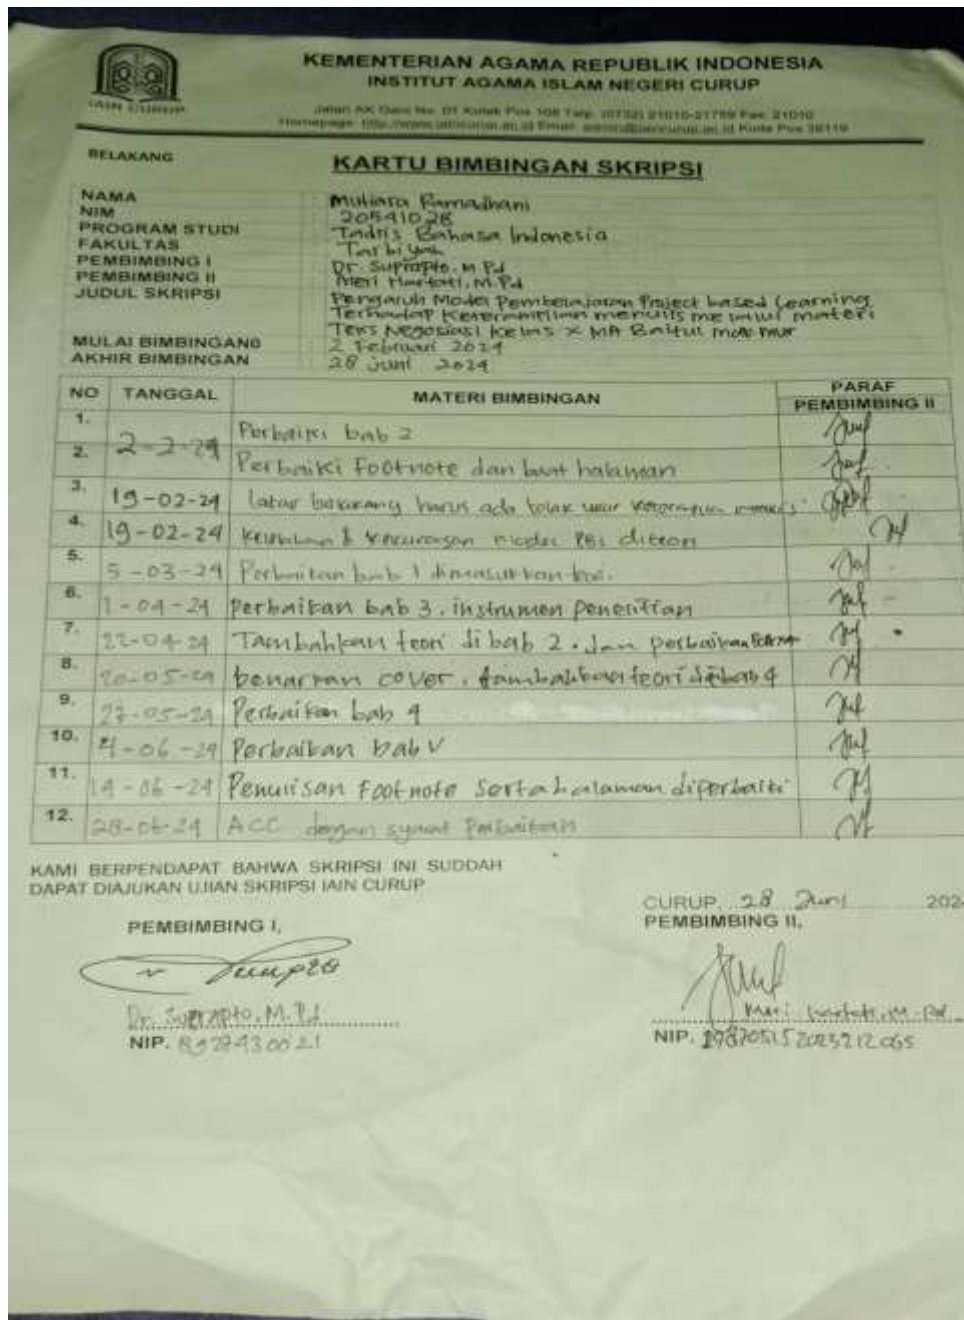 KEMENTERIAN AGAMA REPUBLIK INDONESIA
INSTITUT AGAMA ISLAM NEGERI CURUP
IAIN CURUP
Jalan AK Gani No. 01 Kotak Pos 108 Telp. (0732) 21010-21759 Fax. 21010
Homepage: http://www.iaincurup.ac.id Email: admin@iaincurup.ac.id Kode Pos 39119
BELAKANG
KARTU BIMBINGAN SKRIPSI
NAMA : Mutiara Ramadhani
NIM : 20541028
PROGRAM STUDI : Tadris Bahasa Indonesia
FAKULTAS : Tarbiyah
PEMBIMBING I : Dr. Suprapto, M.Pd
PEMBIMBING II : Meri Hartati, M.Pd
JUDUL SKRIPSI : Pengaruh Model Pembelajaran Project based Learning
Terhadap Keterampilan menulis melalui materi
Teks Negosiasi kelas X MA Baitul makmur
MULAI BIMBINGAN : 2 Februari 2024
AKHIR BIMBINGAN : 28 juni 2024
NO TANGGAL MATERI BIMBINGAN PARAF
PEMBIMBING II
1. Perbaiki bab 2
2-2-24
2. Perbaiki Footnote dan buat halaman
3. 19-02-24 latar belakang harus ada tolak ukur
4. 19-02-24 kekurangan model PBL
5. 5-03-24 Perbaikan bab 1 dimasukkan
6. 1-04-24 perbaikan bab 3. instrumen penelitian
7. 22-04-24 Tambahkan teori di bab 2. dan perbaikan
8. 20-05-24 benarkan cover. tambahkan teori di bab 4
9. 27-05-24 Perbaikan bab 4
10. 4-06-24 Perbaikan bab V
11. 14-06-24 Penulisan Footnote serta halaman diperbaiki
12. 28-06-24 ACC dengan syarat Perbaikan
KAMI BERPENDAPAT BAHWA SKRIPSI INI SUDDAH
DAPAT DIAJUKAN UJIAN SKRIPSI IAIN CURUP
CURUP, 28 Juni 202
PEMBIMBING I, PEMBIMBING II,
Dr. Suprapto, M.Pd Meri Hartati, M.Pd
NIP. NIP. 198705152023212065